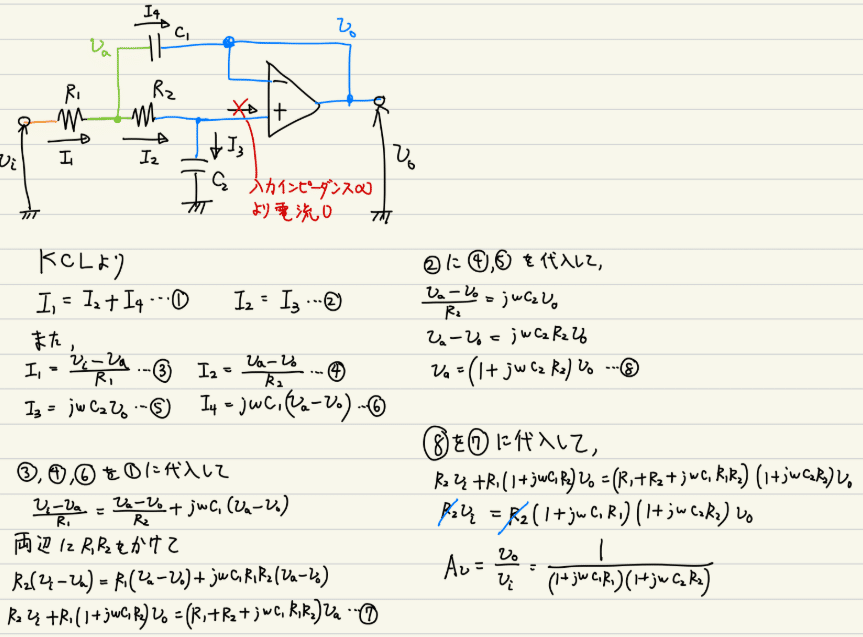 I₄
C₁
v₀
vₐ
R₁
R₂
−
+
I₁
I₂
I₃
C₂
vᵢ
v₀
入力インピーダンス∞
より電流0
KCLより
I₁ = I₂ + I₄ …① I₂ = I₃ …②
また,
I₁ = (vᵢ − vₐ)/R₁ …③ I₂ = (vₐ − v₀)/R₂ …④
I₃ = jωC₂v₀ …⑤ I₄ = jωC₁(vₐ − v₀) …⑥
③,④,⑥を①に代入して
(vᵢ − vₐ)/R₁ = (vₐ − v₀)/R₂ + jωC₁(vₐ − v₀)
両辺にR₁R₂をかけて
R₂(vᵢ − vₐ) = R₁(vₐ − v₀) + jωC₁R₁R₂(vₐ − v₀)
R₂vᵢ + R₁(1 + jωC₁R₂)v₀ = (R₁ + R₂ + jωC₁R₁R₂)vₐ …⑦
②に④,⑤を代入して,
(vₐ − v₀)/R₂ = jωC₂v₀
vₐ − v₀ = jωC₂R₂v₀
vₐ = (1 + jωC₂R₂)v₀ …⑧
⑧を⑦に代入して,
R₂vᵢ + R₁(1 + jωC₁R₂)v₀ = (R₁ + R₂ + jωC₁R₁R₂)(1 + jωC₂R₂)v₀
R₂vᵢ = R₂(1 + jωC₁R₁)(1 + jωC₂R₂)v₀
Aᵥ = v₀/vᵢ = 1/((1 + jωC₁R₁)(1 + jωC₂R₂))